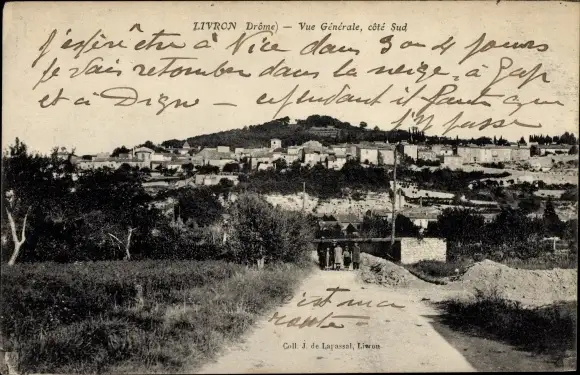 LIVRON Drôme) - Vue Générale, côté Sud
j'espère être à Nice dans 3 ou 4 jours
je vais retomber dans la neige, à Gap
et à Dign - cependant il faut que
j'y passe
c'est ma
route -
Coll. J. de Lapassat, Livron